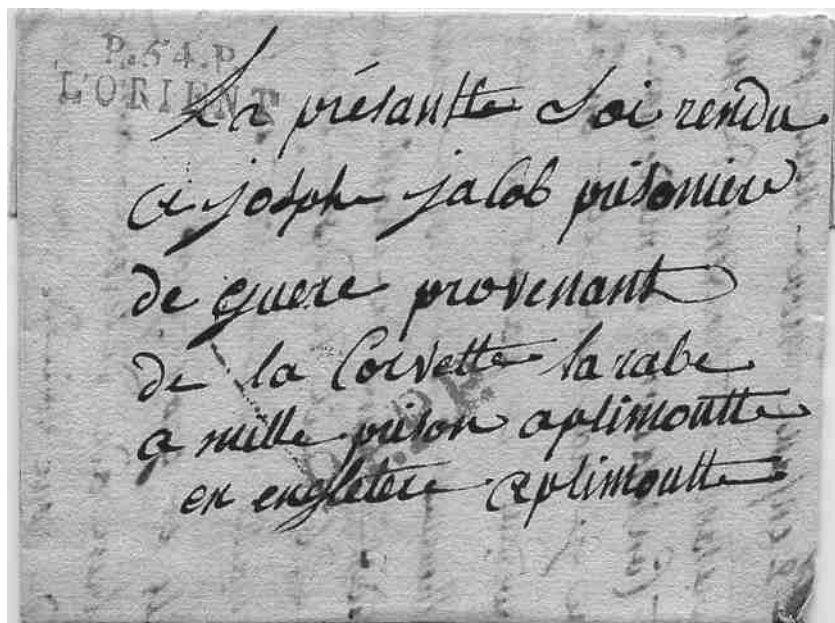 P.54.P.
L'ORIENT
La présantte Soi rendu
a joseph jacob prisoniere
de guere provenant
de la Corvette larabe
a mille prison aplimoutte
en engletere aplimoutte